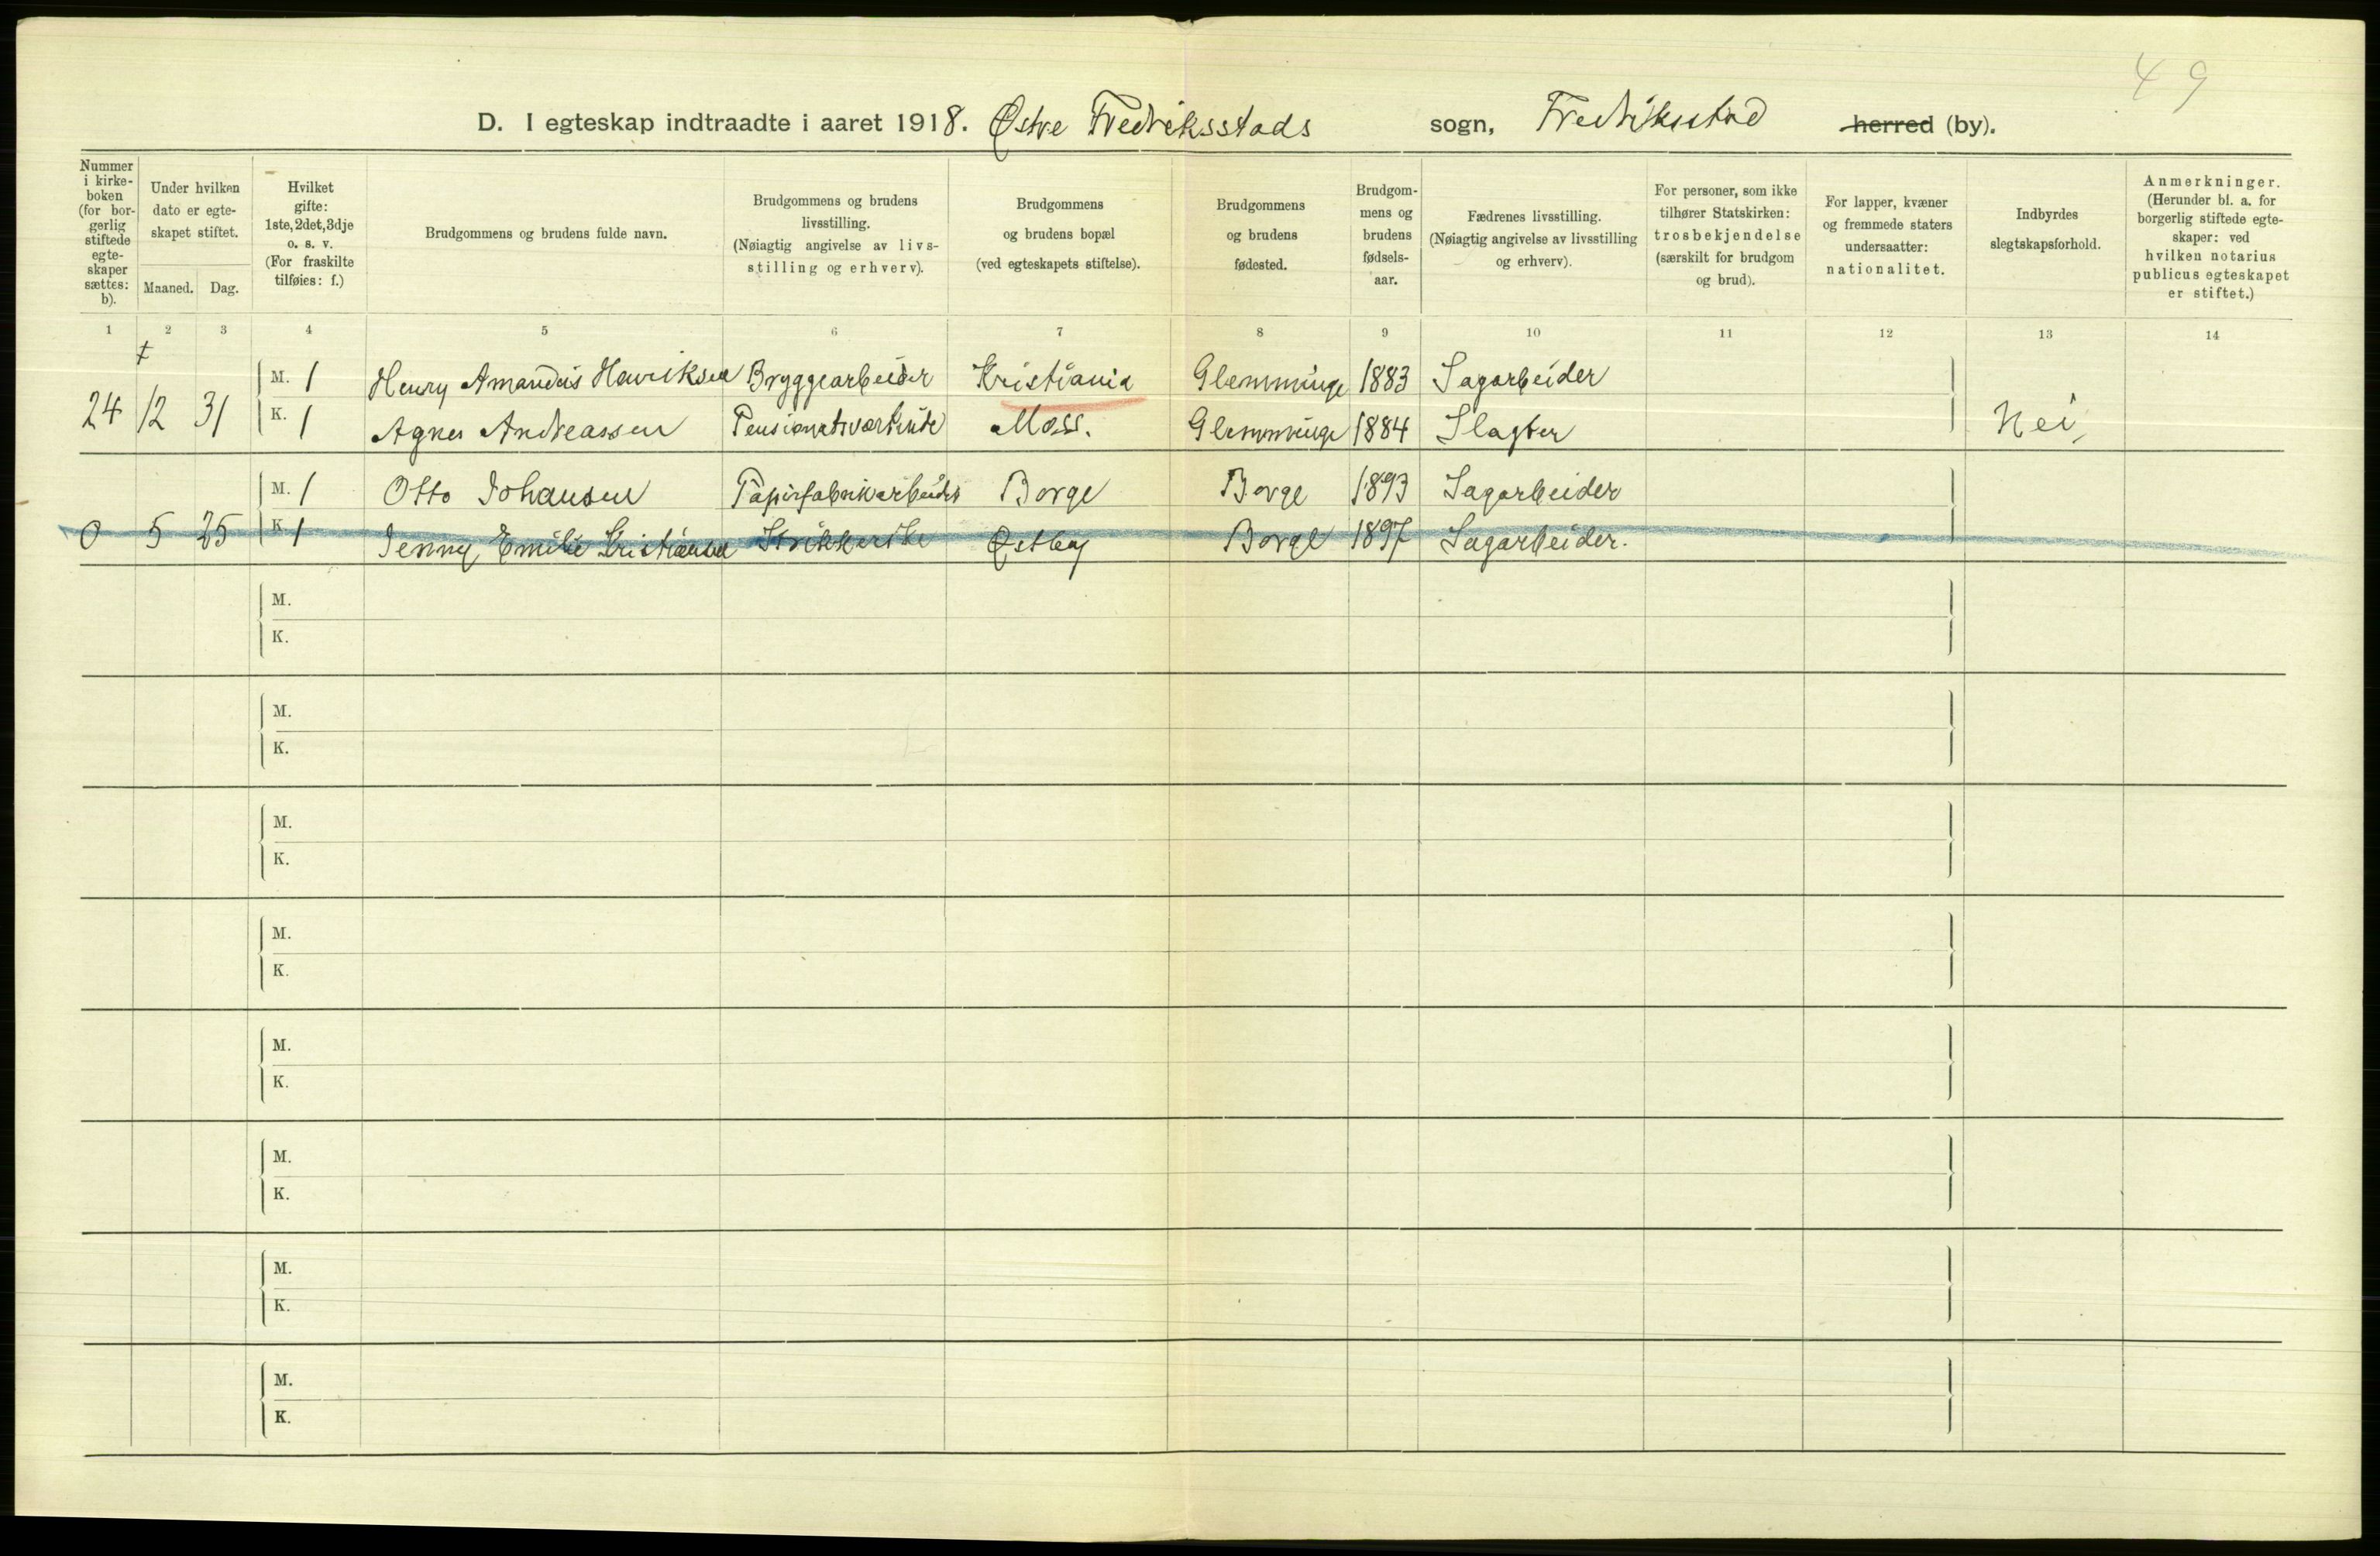 49
D. I egteskap indtraadte i aaret 1918. Østre Fredriksstads sogn, Fredriksstad herred (by).
Nummer i kirkeboken (for borgerlig stiftede egteskaper sættes: b).
Under hvilken dato er egteskapet stiftet.
Maaned. Dag.
Hvilket gifte: 1ste, 2det, 3dje o. s. v. (For fraskilte tilføies: f.)
Brudgommens og brudens fulde navn.
Brudgommens og brudens livsstilling. (Nøiagtig angivelse av livsstilling og erhverv).
Brudgommens og brudens bopæl (ved egteskapets stiftelse).
Brudgommens og brudens fødested.
Brudgommens og brudens fødselsaar.
Fædrenes livsstilling. (Nøiagtig angivelse av livsstilling og erhverv).
For personer, som ikke tilhører Statskirken: trosbekjendelse (særskilt for brudgom og brud).
For lapper, kvæner og fremmede staters undersaatter: nationalitet.
Indbyrdes slegtskapsforhold.
Anmerkninger. (Herunder bl. a. for borgerlig stiftede egteskaper: ved hvilken notarius publicus egteskapet er stiftet.)
1 2 3 4 5 6 7 8 9 10 11 12 13 14
M. 1 Henry Amandus Henriksen Bryggearbeider Kristiania Glemminge 1883 Sagarbeider
24 12 31 K. 1 Agnes Andreassen Pensionatsvertinde Moss. Glemminge 1884 Slagter Nei
M. 1 Otto Johansen Papirfabrikarbeider Borge Borge 1893 Sagarbeider
0 5 25 K 1 Jenny Emilie Kristiansen Strikkerske Østby Borge 1897 Sagarbeider.
M.
K.
M.
K.
M.
K.
M.
K.
M.
K.
M.
K.
M.
K.
M.
K.